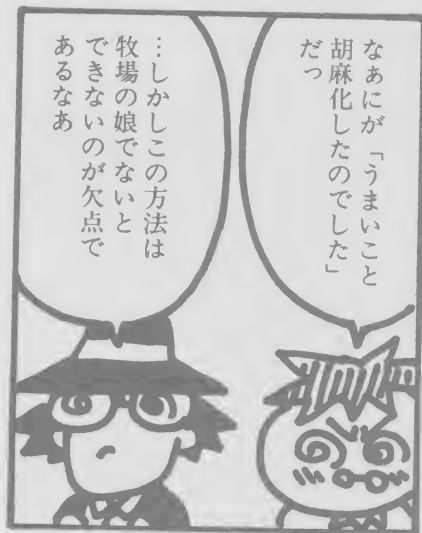 なぁにが「うまいこと
胡麻化したのでした」
だっ
…しかしこの方法は
牧場の娘でないと
できないのが欠点で
あるなあ